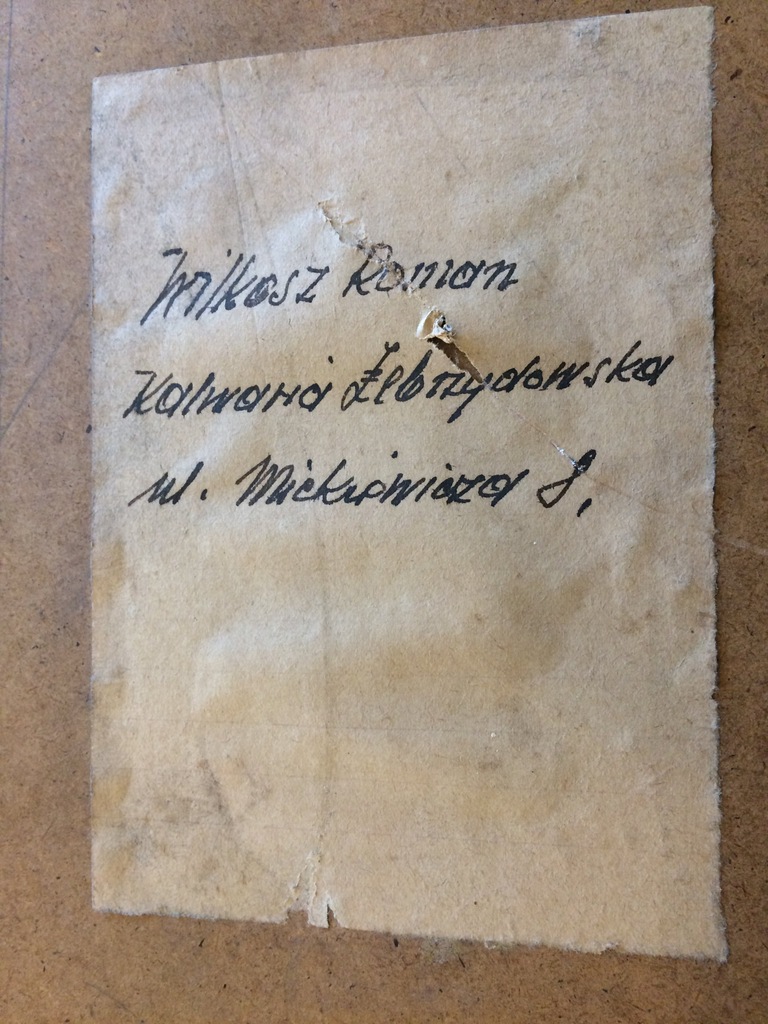 Wilkosz Roman
Kalwaria Żebrzydowska
ul. Mickiewicza 8,